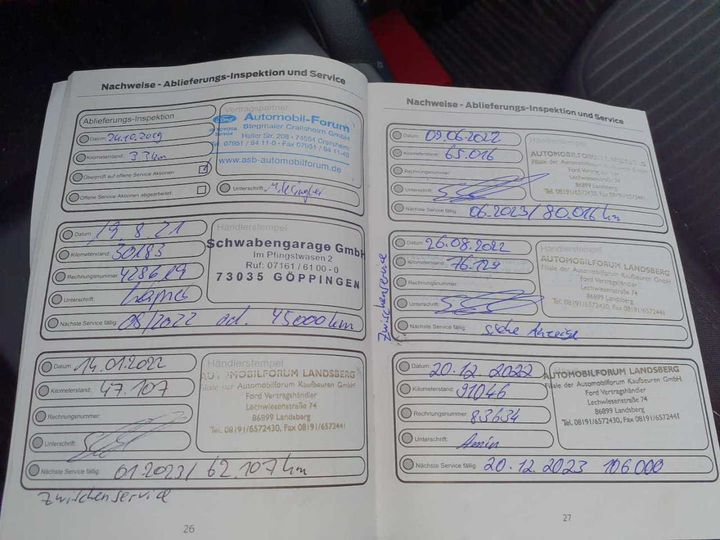 Nachweise - Ablieferungs-Inspektion und Service
Ablieferungs-Inspektion
Datum: 24.10.2019
Kilometerstand: 33 km
Überprüft auf offene Service Aktionen:
Offene Service Aktionen abgearbeitet:
Vertragspartner
Ford
Automobil-Forum
Stegmaier Crailsheim GmbH
Haller Str. 208 - 74564 Crailsheim
Tel. 07951 / 94 11-0 - Fax 07951 / 94 11-40
www.asb-automobilforum.de
Unterschrift:
Datum: 19.8.21
Kilometerstand: 30183
Rechnungsnummer: 428619
Unterschrift:
Nächste Service fällig: 08/2022 od. 45000 km
Händlerstempel
Schwabengarage GmbH
Im Pfingstwasen 2
Ruf: 07161 / 61 00 - 0
73035 GÖPPINGEN
Datum: 14.01.2022
Kilometerstand: 47.107
Rechnungsnummer:
Unterschrift:
Nächste Service fällig: 01.2023 / 62.107 km
Händlerstempel
AUTOMOBILFORUM LANDSBERG
Filiale der Automobilforum Kaufbeuren GmbH
Ford Vertragshändler
Lechwiesenstraße 74
86899 Landsberg
Tel. 08191/6572430, Fax 08191/6572441
Zwischenservice
26
Nachweise - Ablieferungs-Inspektion und Service
Datum: 09.06.2022
Kilometerstand: 65.016
Rechnungsnummer:
Unterschrift:
Nächste Service fällig: 06.2023 / 80.016 km
Händlerstempel
AUTOMOBILFORUM
Lechwiesenstraße 74
86899 Landsberg
Tel. 08191/6572430, Fax 08191/6572441
Zwischenservice
Datum: 26.08.2022
Kilometerstand: 76.129
Rechnungsnummer:
Unterschrift:
Nächste Service fällig: siehe Anzeige
Händlerstempel
AUTOMOBILFORUM LANDSBERG
Filiale der Automobilforum Kaufbeuren GmbH
Ford Vertragshändler
Lechwiesenstraße 74
86899 Landsberg
Tel. 08191/6572430, Fax 08191/6572441
Datum: 20.12.2022
Kilometerstand: 91046
Rechnungsnummer: 83634
Unterschrift: Amin
Nächste Service fällig: 20.12.2023 106000
Händlerstempel
AUTOMOBILFORUM LANDSBERG
Filiale der Automobilforum Kaufbeuren GmbH
Ford Vertragshändler
Lechwiesenstraße 74
86899 Landsberg
Tel. 08191/6572430, Fax 08191/6572441
27